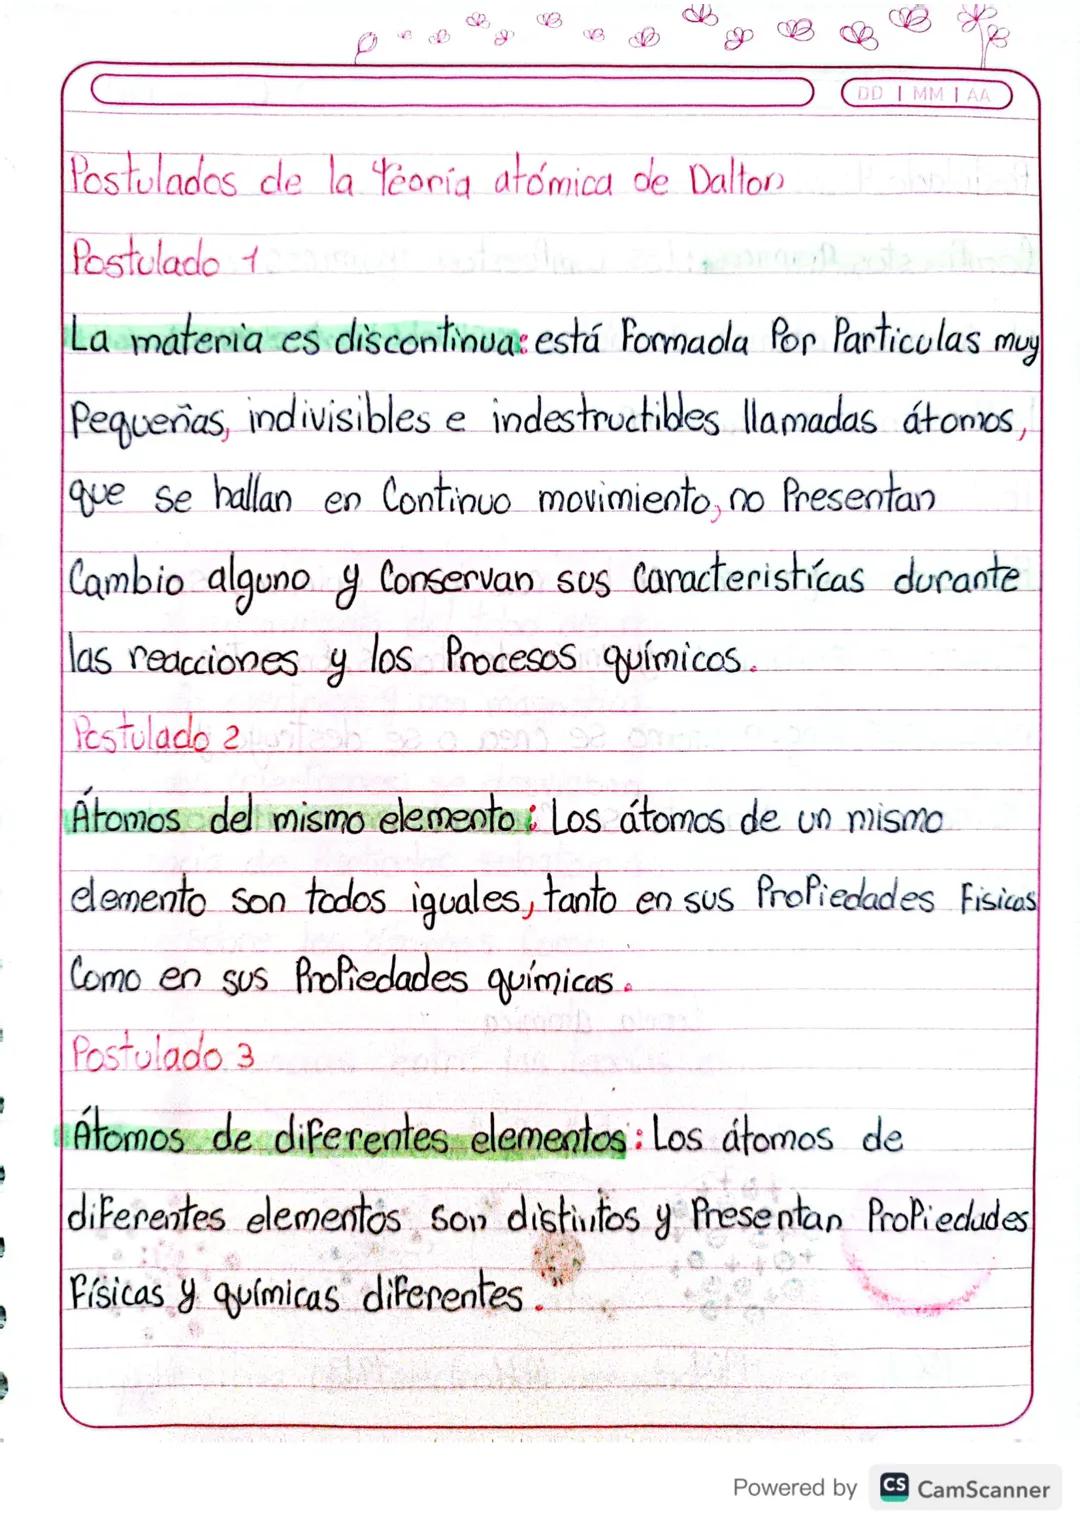 DD | MM | AA
Postulados de la Teoría atómica de Dalton
Postulado 1
La materia es discontinua: está Formada Por Particulas muy
Pequeñas, indivisibles e indestructibles llamadas átomos,
que se hallan en Continuo movimiento, no Presentan
Cambio alguno y Conservan sus Caracteristícas durante
las reacciones y los Procesos químicos.
Postulado 2
Átomos del mismo elemento: Los átomos de un mismo
elemento son todos iguales, tanto en sus ProPiedades Fisicas
Como en sus ProPiedades químicas.
Postulado 3
Átomos de diferentes elementos: Los átomos de
diferentes elementos son distintos y Presentan ProPiedades
Físicas y químicas diferentes.
Powered by CS CamScanner